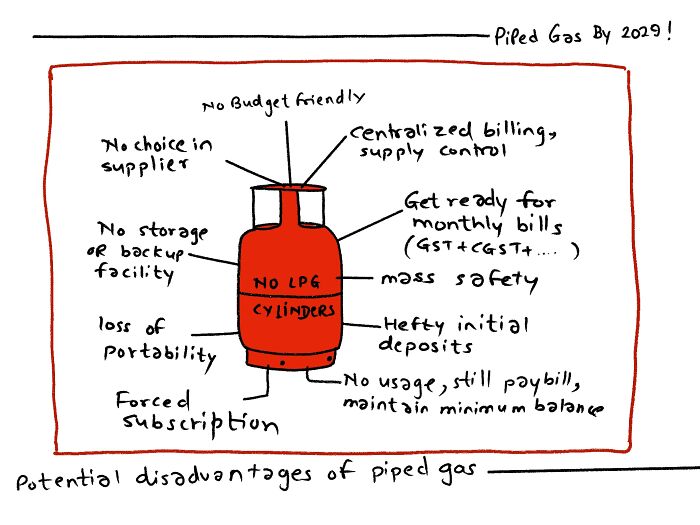 Piped Gas By 2029!
No Budget friendly
No choice in
supplier
centralized billing,
supply control
Get ready for
monthly bills
(GST+CGST+....)
No storage
OR backup
facility
NO LPG
CYLINDERS
mass safety
loss of
portability
Hefty initial
deposits
Forced
subscription
No usage, still pay bill,
maintain minimum balance
Potential disadvantages of piped gas